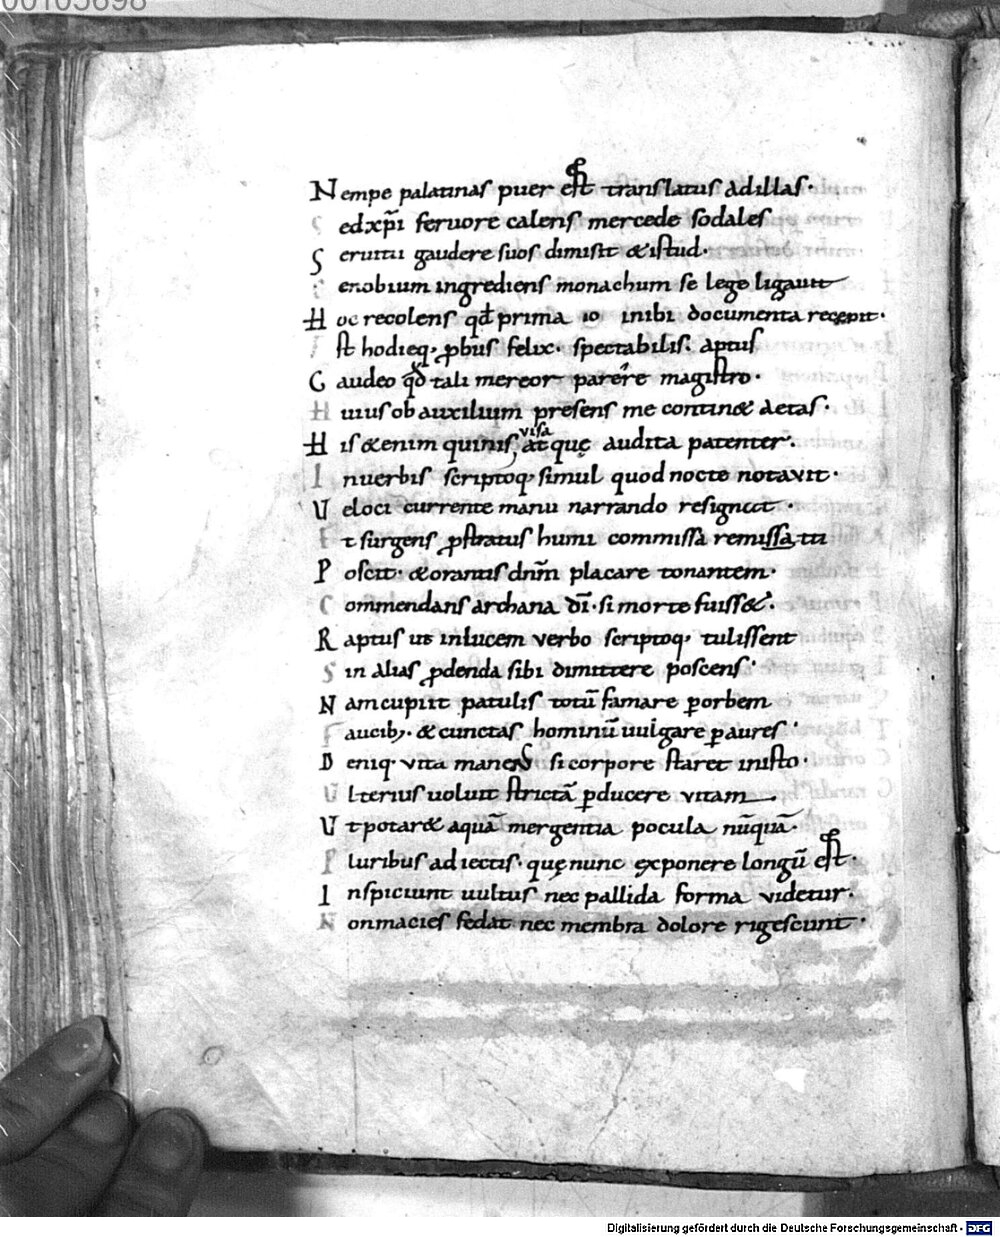 00105698
Nempe palatinas puer est translatus ad illas·
Sed xp̄i feruore calens mercede sodales
Seruitii gaudere suos dimisit & istud·
Cenobium ingrediens monachum se lege ligauit
Hoc recolens qd̄ prima io inibi documenta recępit·
Est hodieq; ꝓbus felix· spectabilis· aptus
Gaudeo qđ tali mereor parere magistro·
Huius ob auxilium presens me contin& aetas·
His &enim quinis, visa atque audita patenter·
In uerbis scriptoq; simul quod nocte notavit·
Veloci currente manu narrando resignat·
Et surgens ꝓstratus humi commissa remissa, tu
Poscit· & orantis dn̄m placare tonantem·
Commendans archana dī· si morte fuiss&·
Raptus ut in lucem verbo scriptoq; tulissent
Sin alias ꝓdenda sibi dimittere poscens·
Nam cupiit patulis totū famare ꝑ orbem
Faucib;· & cunctas hominū uulgare ꝑ aures·
Deniq; vita manens si corpore staret in isto·
Ulterius uoluit strictā ꝑducere vitam
Ut potar& aquā mergentia pocula nūquā·
Pluribus adiectis· quę nunc exponere longū est·
Inspiciunt uultus nec pallida forma videtur·
Non macies fedat nec membra dolore rigescunt·
Digitalisierung gefördert durch die Deutsche Forschungsgemeinschaft - DFG